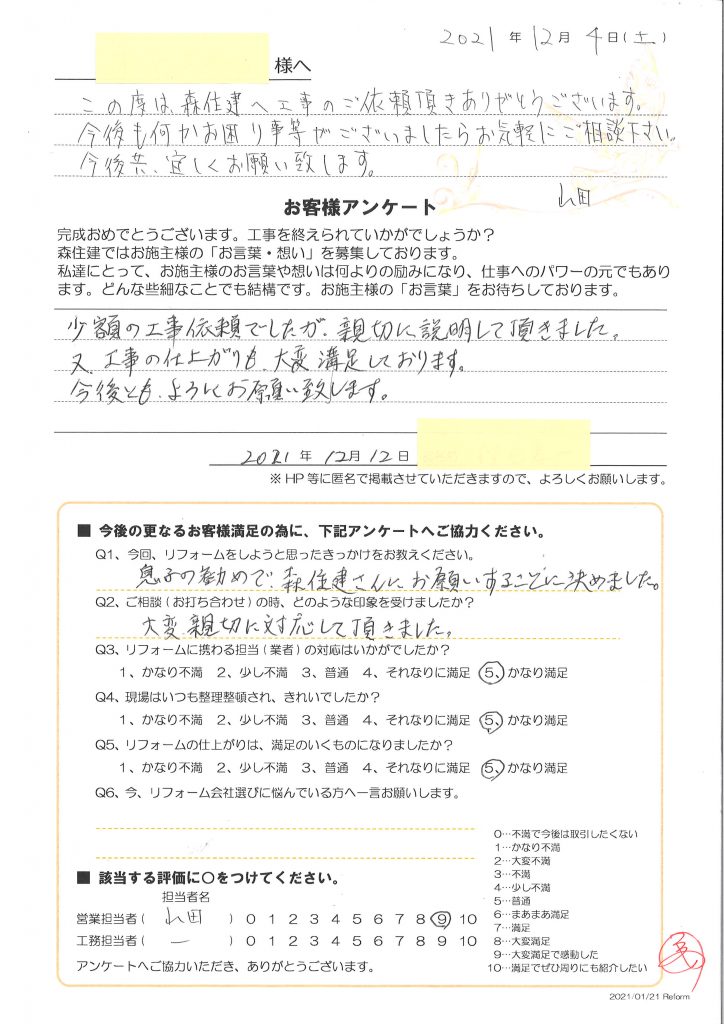 2021年12月4日(土)
様へ
この度は、森住建へ工事のご依頼頂きありがとうございます。
今後も何かお困り事等がございましたらお気軽にご相談下さい。
今後共、宜しくお願い致します。
山田
お客様アンケート
完成おめでとうございます。工事を終えられていかがでしょうか?
森住建ではお施主様の「お言葉・想い」を募集しております。
私達にとって、お施主様のお言葉や想いは何よりの励みになり、仕事へのパワーの元でもあり
ます。どんな些細なことでも結構です。お施主様の「お言葉」をお待ちしております。
少額の工事依頼でしたが、親切に説明して頂きました。
又、工事の仕上がりも、大変満足しております。
今後とも、よろしくお願い致します。
2021年12月12日
※HP等に匿名で掲載させていただきますので、よろしくお願いします。
■ 今後の更なるお客様満足の為に、下記アンケートへご協力ください。
Q1、今回、リフォームをしようと思ったきっかけをお教えください。
息子の勧めで、森住建さんにお願いすることに決めました。
Q2、ご相談(お打ち合わせ)の時、どのような印象を受けましたか?
大変親切に対応して頂きました。
Q3、リフォームに携わる担当(業者)の対応はいかがでしたか?
1、かなり不満 2、少し不満 3、普通 4、それなりに満足 5、かなり満足
Q4、現場はいつも整理整頓され、きれいでしたか?
1、かなり不満 2、少し不満 3、普通 4、それなりに満足 5、かなり満足
Q5、リフォームの仕上がりは、満足のいくものになりましたか?
1、かなり不満 2、少し不満 3、普通 4、それなりに満足 5、かなり満足
Q6、今、リフォーム会社選びに悩んでいる方へ一言お願いします。
■ 該当する評価に○をつけてください。
担当者名
営業担当者( 山田 ) 0 1 2 3 4 5 6 7 8 9 10
工務担当者( ー ) 0 1 2 3 4 5 6 7 8 9 10
アンケートへご協力いただき、ありがとうございます。
0…不満で今後は取引したくない
1…かなり不満
2…大変不満
3…不満
4…少し不満
5…普通
6…まあまあ満足
7…満足
8…大変満足
9…大変満足で感動した
10…満足でぜひ周りにも紹介したい
2021/01/21 Reform